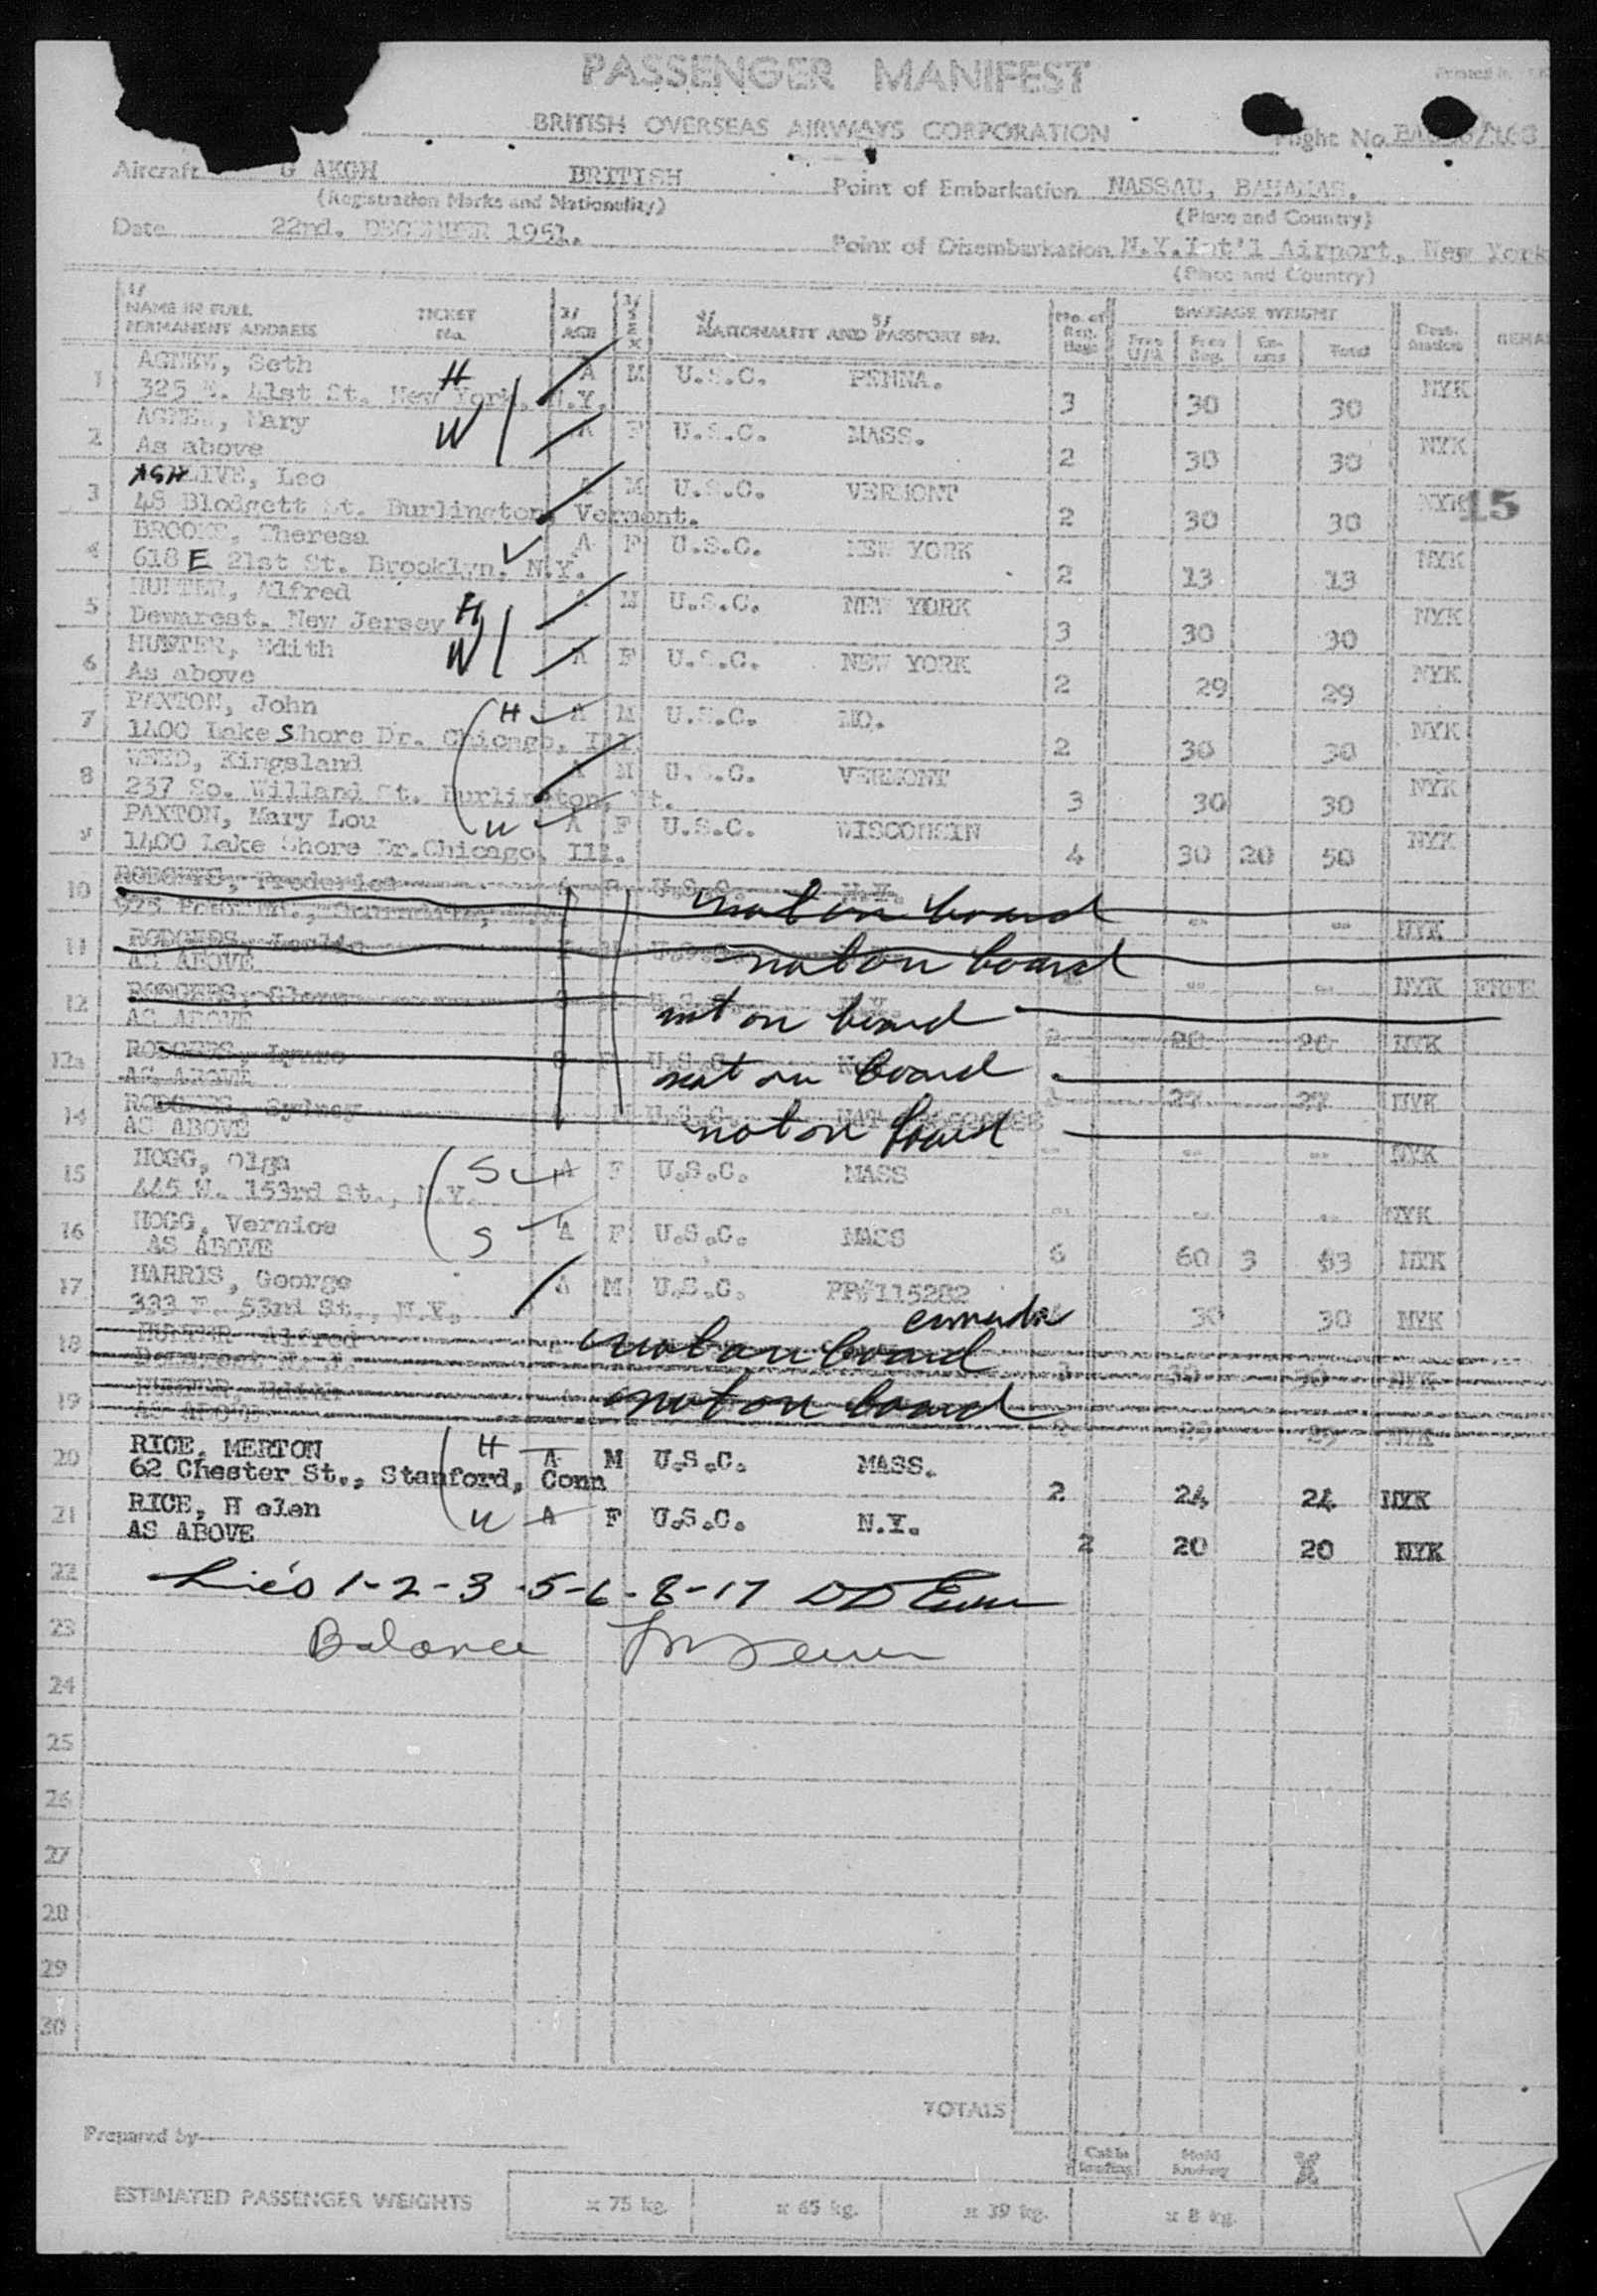 PASSENGER MANIFEST
Printed in
BRITISH OVERSEAS AIRWAYS CORPORATION
Flight No.
Aircraft G AKGH BRITISH Point of Embarkation NASSAU, BAHAMAS.
(Registration Marks and Nationality) (Place and Country)
Date 22nd. DECEMBER 1951. Point of Disembarkation N.Y.Int'l Airport, New York
(Place and Country)
1/ NAME IN FULL PERMANENT ADDRESS TICKET No. 2/ AGE 3/ SEX 4/ NATIONALITY AND 5/ PASSPORT No. No. of Reg. Bags BAGGAGE WEIGHT Free U/A Free Reg. Ex-cess Total Dest-ination REMA
1 AGNEW, Seth H A M U.S.C. PENNA. NYK
325 E. 41st St. New York, N.Y. 3 30 30
2 AGNEW, Mary W A F U.S.C. MASS. NYK
As above 2 30 30
3 ASHLIVE, Leo A M U.S.C. VERMONT NYK 15
48 Blodgett St. Burlington, Vermont. 2 30 30
4 Theresa A F U.S.C. NEW YORK NYK
618 E 21st St. Brooklyn. N.Y. 2 13 13
5 HUNTER, Alfred H A M U.S.C. NEW YORK NYK
Demarest. New Jersey 3 30 30
6 HUNTER, Edith W A F U.S.C. NEW YORK NYK
As above 2 29 29
7 PAXTON, John H A M U.S.C. MO. NYK
1400 Lake Shore Dr. Chicago, Ill. 2 30 30
8 WEED, Kingsland A M U.S.C. VERMONT NYK
237 So. Willard St. Burlington, Vt. 3 30 30
9 PAXTON, Mary Lou W A F U.S.C. WISCONSIN NYK
1400 Lake Shore Dr.Chicago, Ill. 4 30 20 50
10 RODGERS, Frederica U.S.C. N.Y. not on board
925 -- -- NYK
11 RODGERS, Leslie not on board
AS ABOVE -- -- NYK FREE
12 RODGERS, not on board
AS ABOVE 2 20 20 NYK
12a RODGERS, U.S.C. not on board
AS ABOVE 27 27 NYK
14 RODGERS, Sydney M U.S.C. not on board
AS ABOVE -- -- -- NYK
15 HOGG, Olga S A F U.S.C. MASS
445 W. 153rd St., N.Y. -- -- -- NYK
16 HOGG, Vernice S A F U.S.C. MASS
AS ABOVE 6 60 3 63 NYK
17 HARRIS, George A M U.S.C. PP#115282
333 E. 53rd St., N.Y. 30 30 NYK
18 HUNTER Alfred not on board
Demarest N.J. 3 30 30 NYK
19 HUNTER Edith not on board
AS ABOVE 2 29 29 NYK
20 RICE, MERTON H A M U.S.C. MASS.
62 Chester St., Stanford, Conn 2 24 24 NYK
21 RICE, H elen W A F U.S.C. N.Y.
AS ABOVE 2 20 20 NYK
22 1-2-3-5-6-8-17
23 Balance
24
25
26
27
28
29
30
TOTALS
Prepared by
ESTIMATED PASSENGER WEIGHTS x 75 kg. x 65 kg. x 39 kg. x 8 kg.